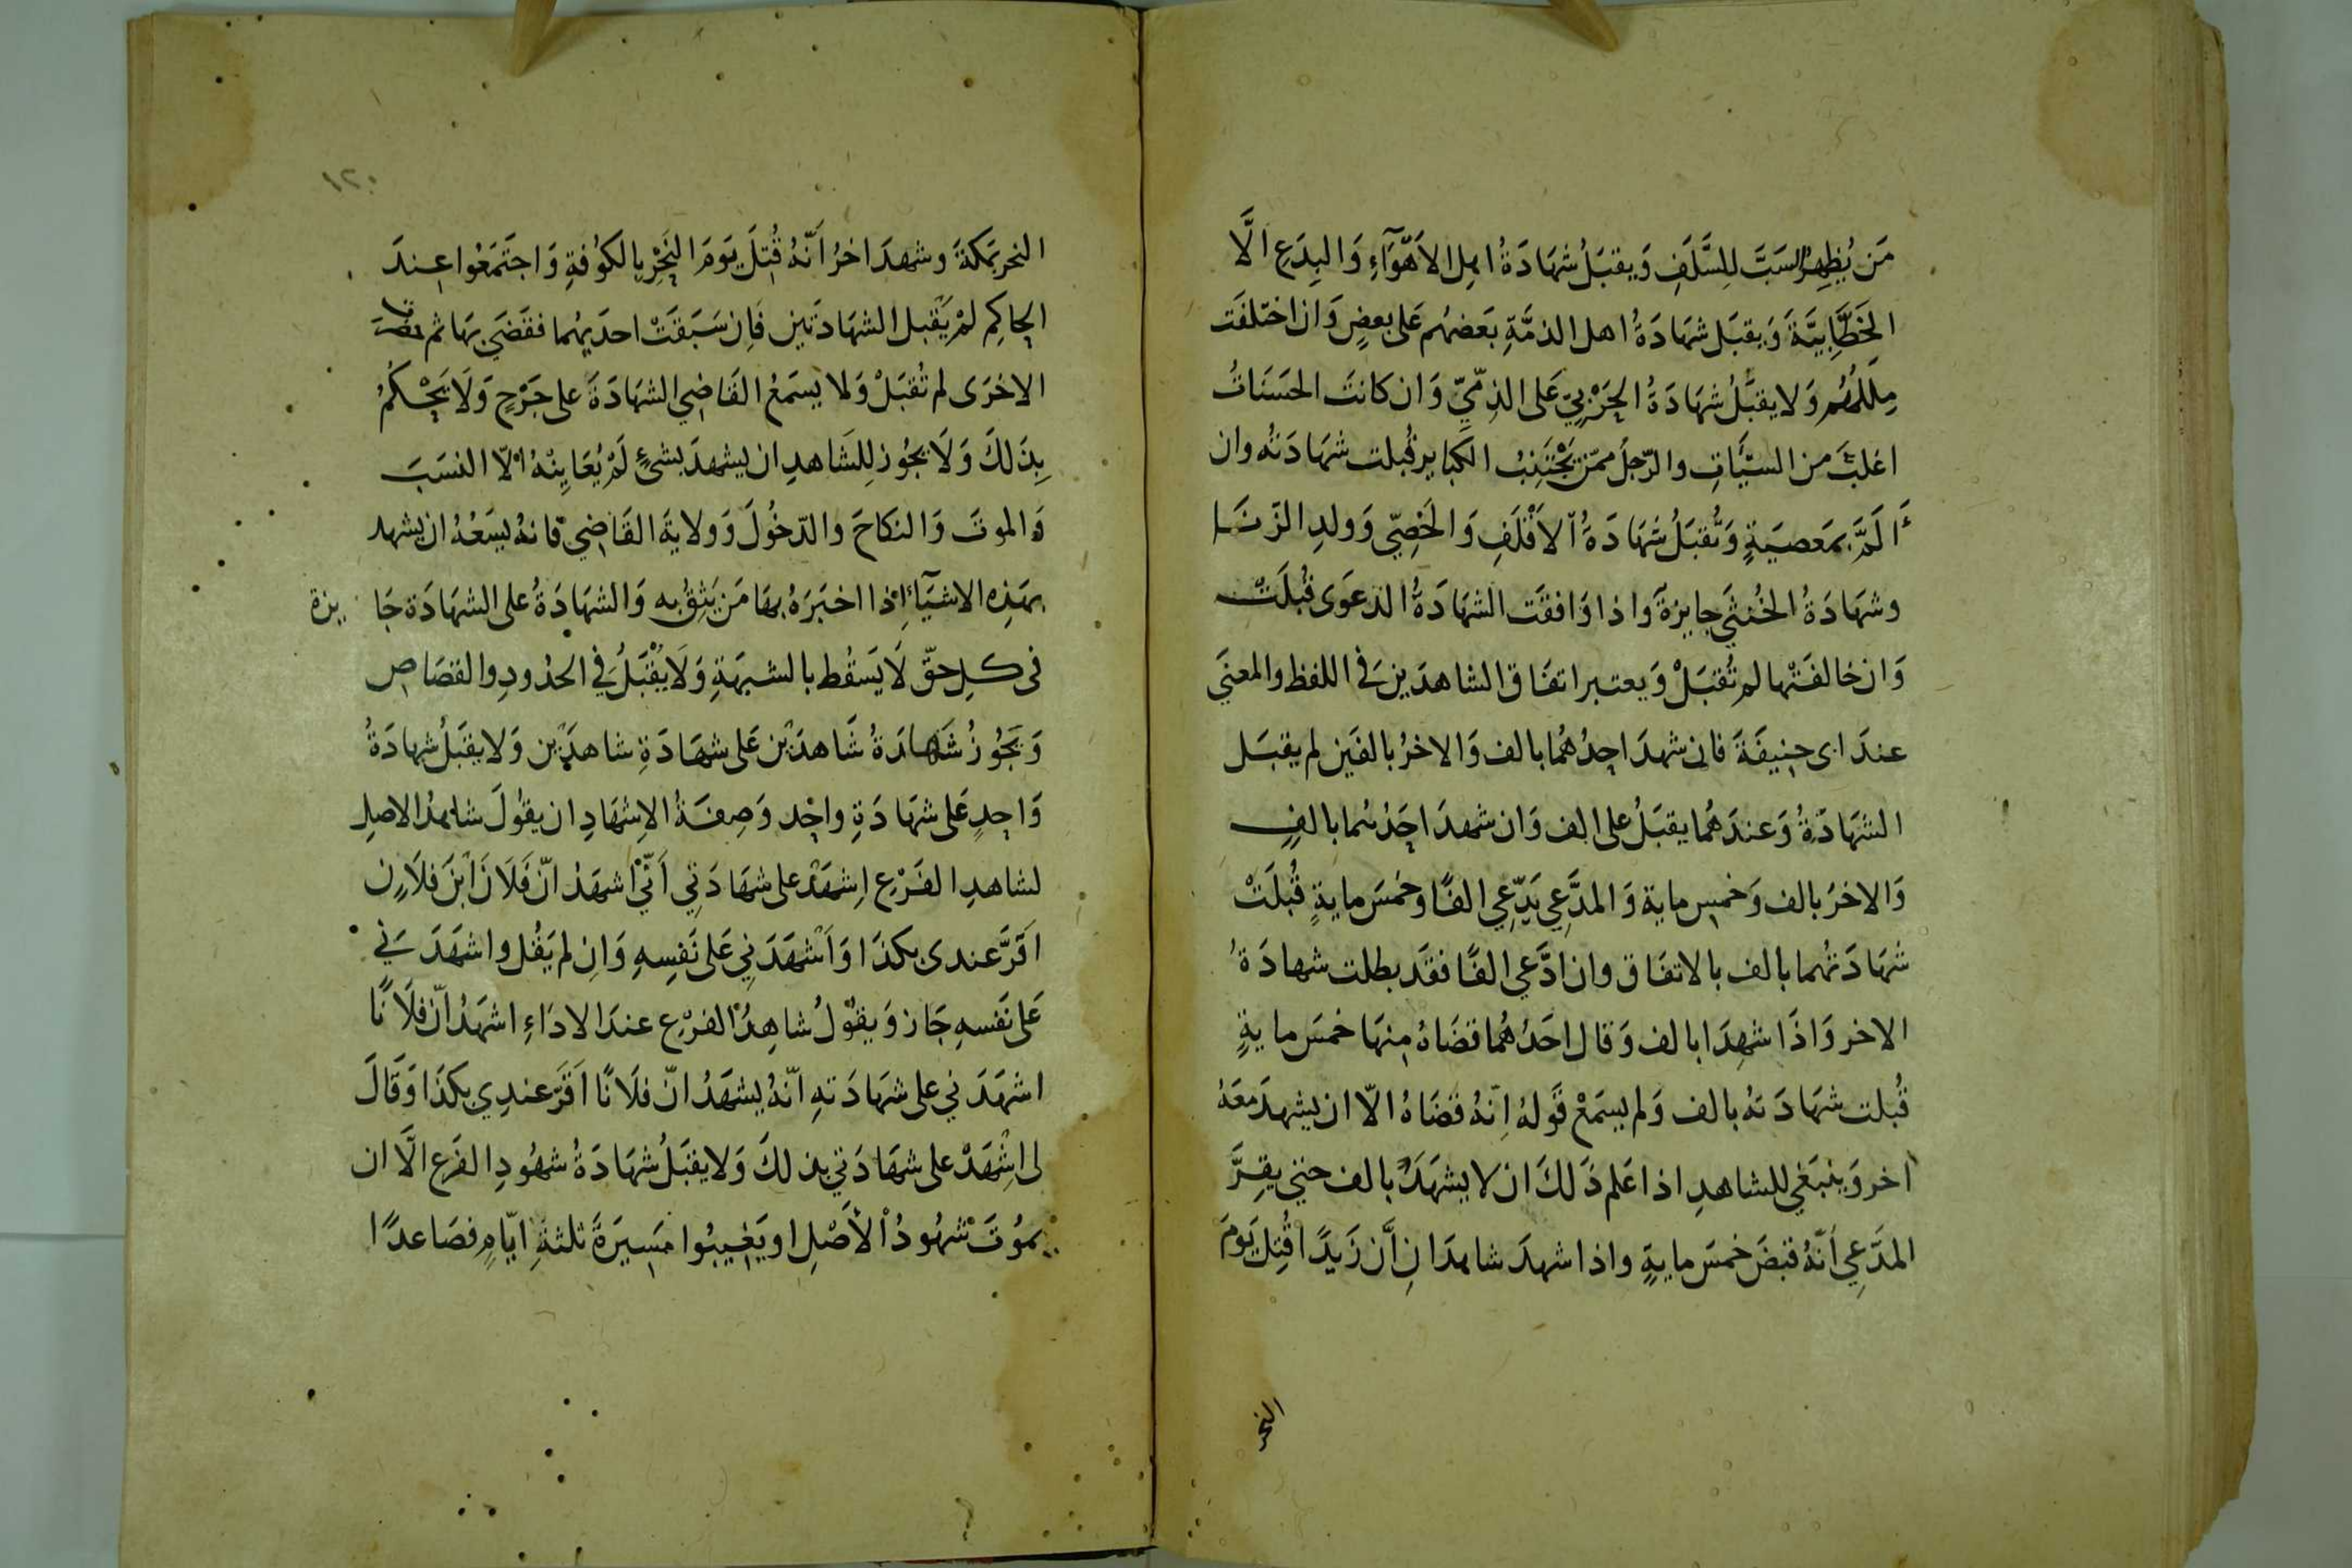 مَن يُظهِرُ سَبَّ لِلسَّلَفِ وَيقبَلُ شهَادَةُ اهل الاَهَوَآءِ وَالبِدَعِ الَّا
الخَطَّابِيَّةَ وَيقبَل شهَادَةُ اهل الذمَّةِ بَعضهُم عَلى بعضٍ وَان اختلفَت
مِلَلُهُم وَلا يقبَلُ شهَادَةُ الحَرْبِيّ عَلى الذِمّيِّ وَان كانتَ الحَسَنَاتُ
اغلبَ من السيَّاتِ والرّجلُ ممّن يَجْتَنِبُ الكبايرَ قُبلت شهَادَتُه وان
اَلَمَّ بمَعصيَةٍ وَتُقبَلُ شهَادَةُ الاَقْلَفِ وَالخَصِيّ وَولدِ الزّنَا
وشهَادَةُ الخُنثَي جايزةٌ واذا وَافقَت الشهَادَةُ الدعوَى قُبلَتْ
وَان خالفَتْها لم تُقبَلْ وَيعتبر اتفَاق الشاهدَين في اللفظ والمعنَي
عندَ ابى حنيفَةَ فان شهدَ احدُهُما بالف وَالاخرُ بالفَين لم يقبَل
الشهَادَةُ وَعندَهُما يقبَلُ على الف وَان شهدَ احَدُهما بالفٍ
وَالاخرُ بالف وَخمس ماية وَالمدَّعِي يَدّعِي الفًا وخمسَ مايةٍ قُبلَتْ
شهَادَتُهما بالف بالاتفَاق وان ادَّعي الفًا فقَد بطلت شهادَةُ
الاخر وَاذَا شهِدَا بالف وَقال احَدُهُما قضَاهُ مِنهَا خمسَ مايةٍ
قُبلت شهَادَتهُ بالف وَلم يسمَعْ قَولهُ اِنّهُ قضَاهُ الّا ان يشهدَ معَهُ
اخر وَينبَغي للشاهدِ اذا عَلم ذَلكَ ان لا يشهَدَ بالف حتي يقِرَّ
المدَّعِي اَنّهُ قبضَ خمسَ مايةٍ واذا شهدَ شاهدَانِ اَنَّ زَيدًا قُتِلَ يَومَ
النحر
١٢٠
النحر بمَكةَ وشهدَ اخرُ اَنّهُ قُتِلَ يَومَ النَحْرِ بالكوُفةِ وَاجتَمَعُوا عِندَ
الحاكِم لمْ يَقْبل الشهَادتَين فَاِن سَبَقَتْ احدَيهُما فقَضَي بهَا ثم
الاخرَى لم تُقبَلْ وَلا يسمَعُ القَاضِي الشهَادَةَ على جَرْحٍ وَلَا يَحْكُمُ
بِذَلكَ وَلَا يجُوز لِلشَاهدِ ان يشهدَ بشئٍ لَمْ يُعَايِنْهُ اِلّا النسَبَ
وَالموتَ وَالنكاحَ والدّخُولَ وَولايةَ القَاضِي فانهُ يسَعُهُ ان يشهد
بهَذِه الاشيَآءِ اِذا اخبَرَهُ بهَا مَن يَثِقُ به وَالشهَادَةُ على الشهَادَة جَايزة
فى كلِ حقّ لَا يَسقُط بالشبهَةِ وَلَا يُقْبَلُ في الحدُودِ والقصَاص
وَيَجُوزُ شَهَادَةُ شَاهدَيْن عَلى شهَادَةِ شاهدَيْن وَلا يقبَلُ شهادَةُ
وَاحِدٍ عَلى شهَادَةِ واحِد وَصِفَةُ الاِشهَادِ ان يقوُلَ شاهدُ الاصلِ
لشاهدِ الفَرْعِ اِشهَدْ على شهَادَتِي اَنّي اشهَدُ انّ فَلَانَ ابْنَ فلَانٍ
اَقَرَّ عندى بكذَا وَاَشْهَدَنِي عَلى نَفسِهِ وَانِ لم يَقُل واشهَدَنِي
عَلى نَفسهِ جَاز وَيقوْلُ شاهِدُ الفرْعِ عندَ الادَاءِ اشهَدُ انّ فلَانًا
اشهَدَني على شهَادَتهِ انّهُ يشهَدُ انّ فلَانًا اَقَرَّ عندِي بكذَا وَقَالَ
لى اشْهَدْ على شهَادَتي بذلكَ وَلا يقبَلُ شهَادَةُ شهُودِ الفَرع الَّا ان
يموُتَ شهُودُ الاَصْلِ او يَغيبُوا مَسِيرَةَ ثلثةِ ايّامٍ فصَاعدًا